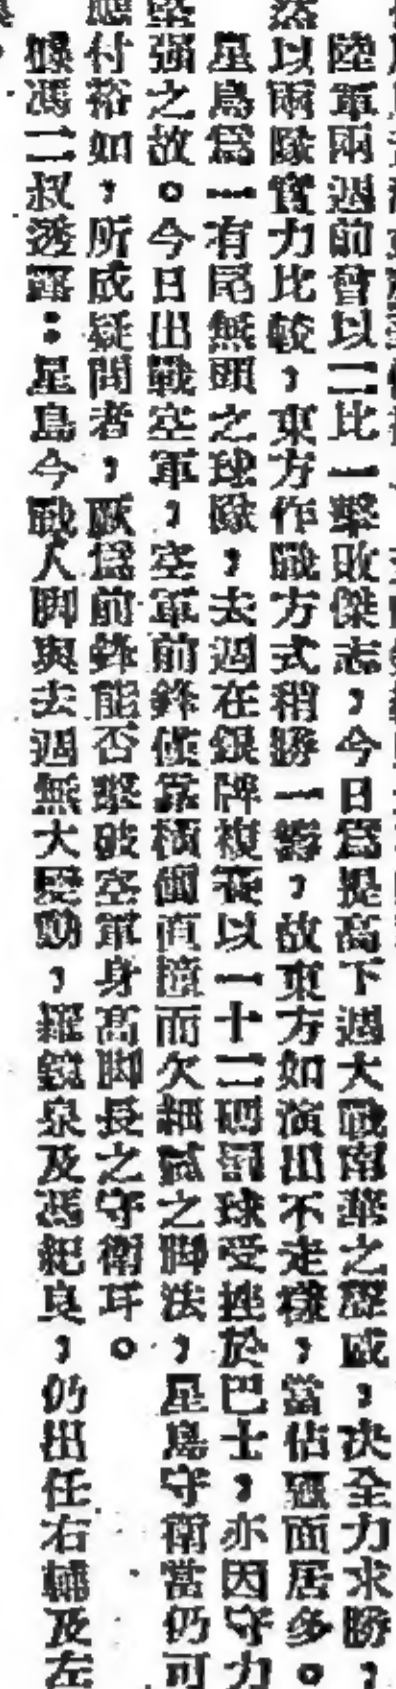 陸軍兩週前曾以二比一擊敗傑志，今日爲提高下週大戰南華之聲威，决全力求勝，
然以兩隊實力比較，東方作戰方式稍勝一籌，故東方如演出不走樣，當佔贏面居多。
星島爲一有尾無頭之球隊，去週在銀牌複賽以一十二碼罰球受挫於巴士，亦因守力
堅强之故。今日出戰空軍，空軍前鋒僅靠橫衝直撞而欠細膩之脚法，星島守衛當仍可
應付裕如，所成疑問者，厥爲前鋒能否擊破空軍身高脚長之守衛耳。
據馮二叔透露：星島今戰人脚與去週無大變動，羅鏡泉及馮紀良，仍出任右輔及左